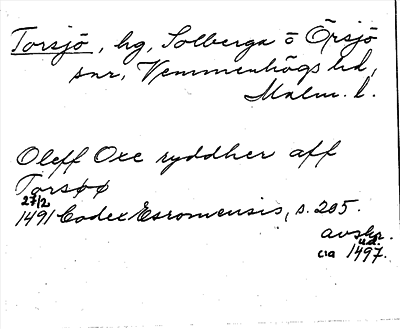 Torsjö, hg, Solberga o Örsjö
snr, Vemmenhögs hd,
Malm. l.
Oleff Oxe ryddher aff
Torsøø
27/2
1491 Codex Esromensis, s. 205.
avskr.
u.å.
cia 1497.